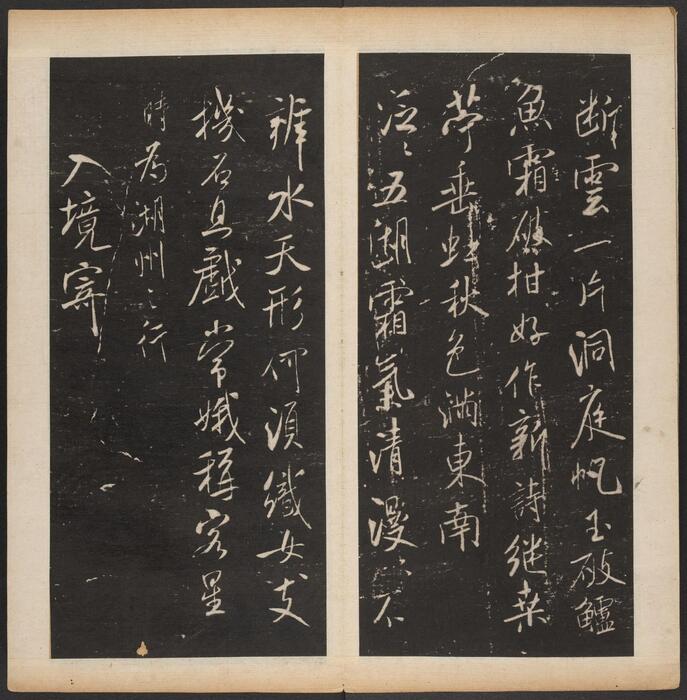 断雲一片洞庭帆玉破鱸
魚霜破柑好作新詩継桑
苧垂虹秋色満東南
泛〻五湖霜氣清漫〻不
辨水天形何須織女支
機石且戲常娥稱客星
時為湖州之行
入境寄